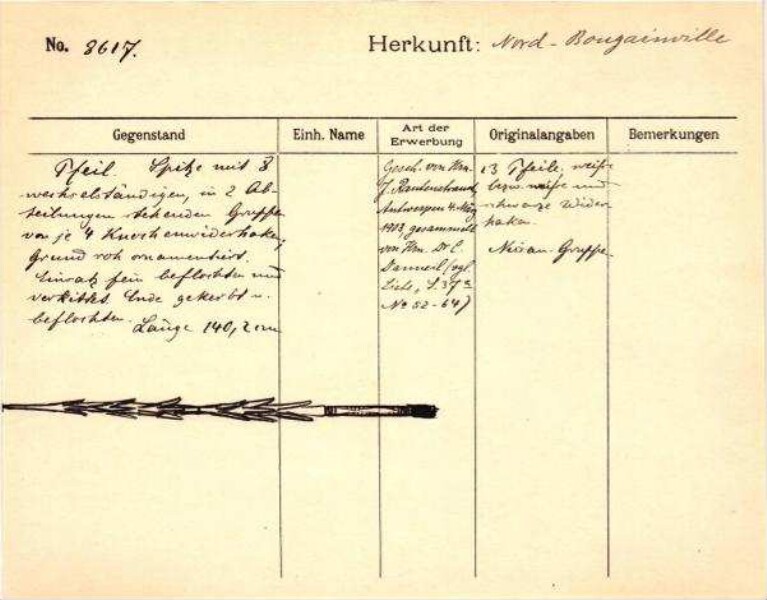 No. 8617.
Herkunft: Nord-Bougainville
Gegenstand
Einh. Name
Art der Erwerbung
Originalangaben
Bemerkungen
Pfeil. Spitze mit 8
wechselständigen, in 2 Ab-
teilungen stehenden Gruppen
von je 4 Knochenwiderhaken;
Grund roh ornamentiert.
Einsatz fein beflochten und
verkittet. Ende gekerbt u.
beflochten.
Länge 140,2 cm
Gesch. von Hrn.
J. Rautenstrauch,
Antwerpen 4. März
1903, gesammelt
von Hrn. Dr. E.
Danneil (vgl.
Liste, S. 37
No 52-64)
13 Pfeile, weiße
bzw. weiße und
schwarze Wider
haken.
Nisan-Gruppe.